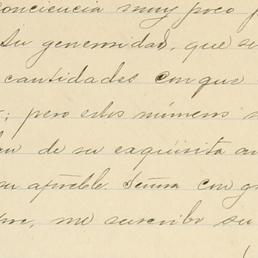 conciencia muy poco p
su generosidad, que se
cantidades con que
; pero estos números n
de su exquisita
su aprable. Señora con g
me suscribo su